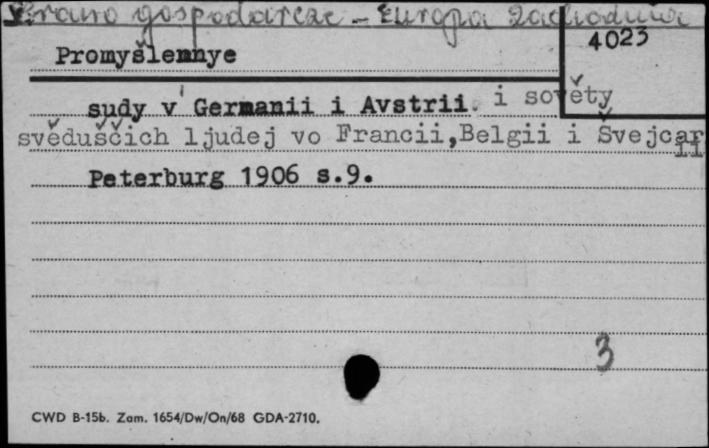 Prawo gospodarcze - Europa Zachodnia
4023
Promyšlennye
sudy v Germanii i Avstrii. i sověty
svěduščich ljudej vo Francii,Belgii i Švejcarii
Peterburg 1906 s.9.
3
CWD B-15b. Zam. 1654/Dw/On/68 GDA-2710.